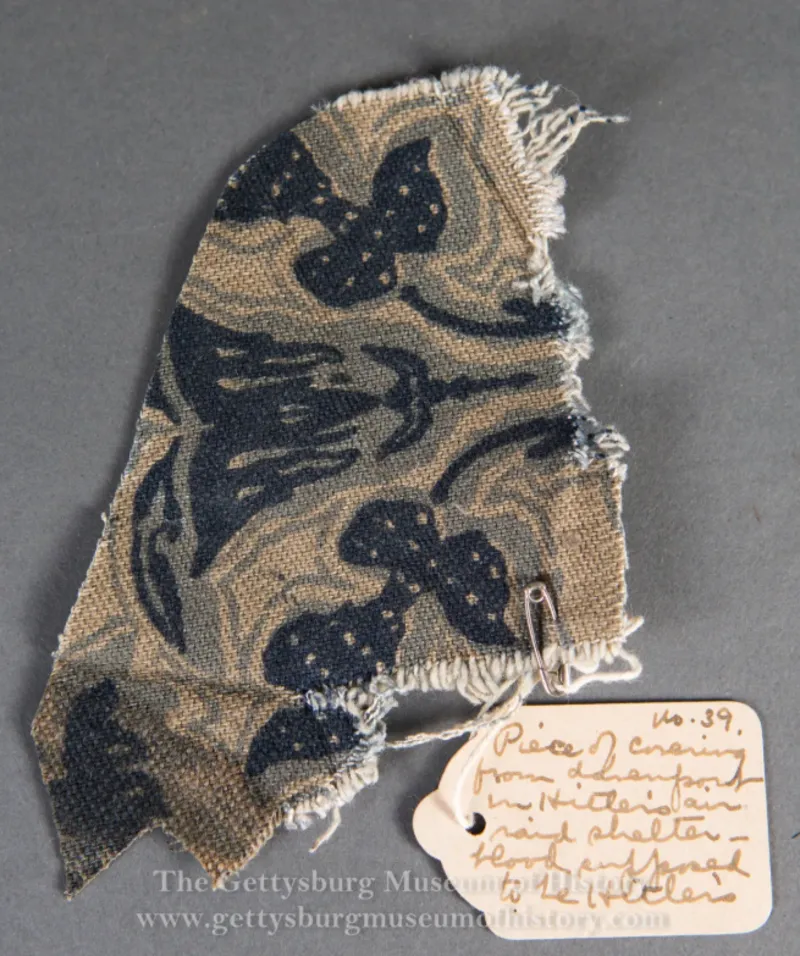 No. 39.
Piece of covering
from davenport
in Hitler's air
raid shelter -
blood supposed
to be Hitler's
The Gettysburg Museum of History
www.gettysburgmuseumofhistory.com